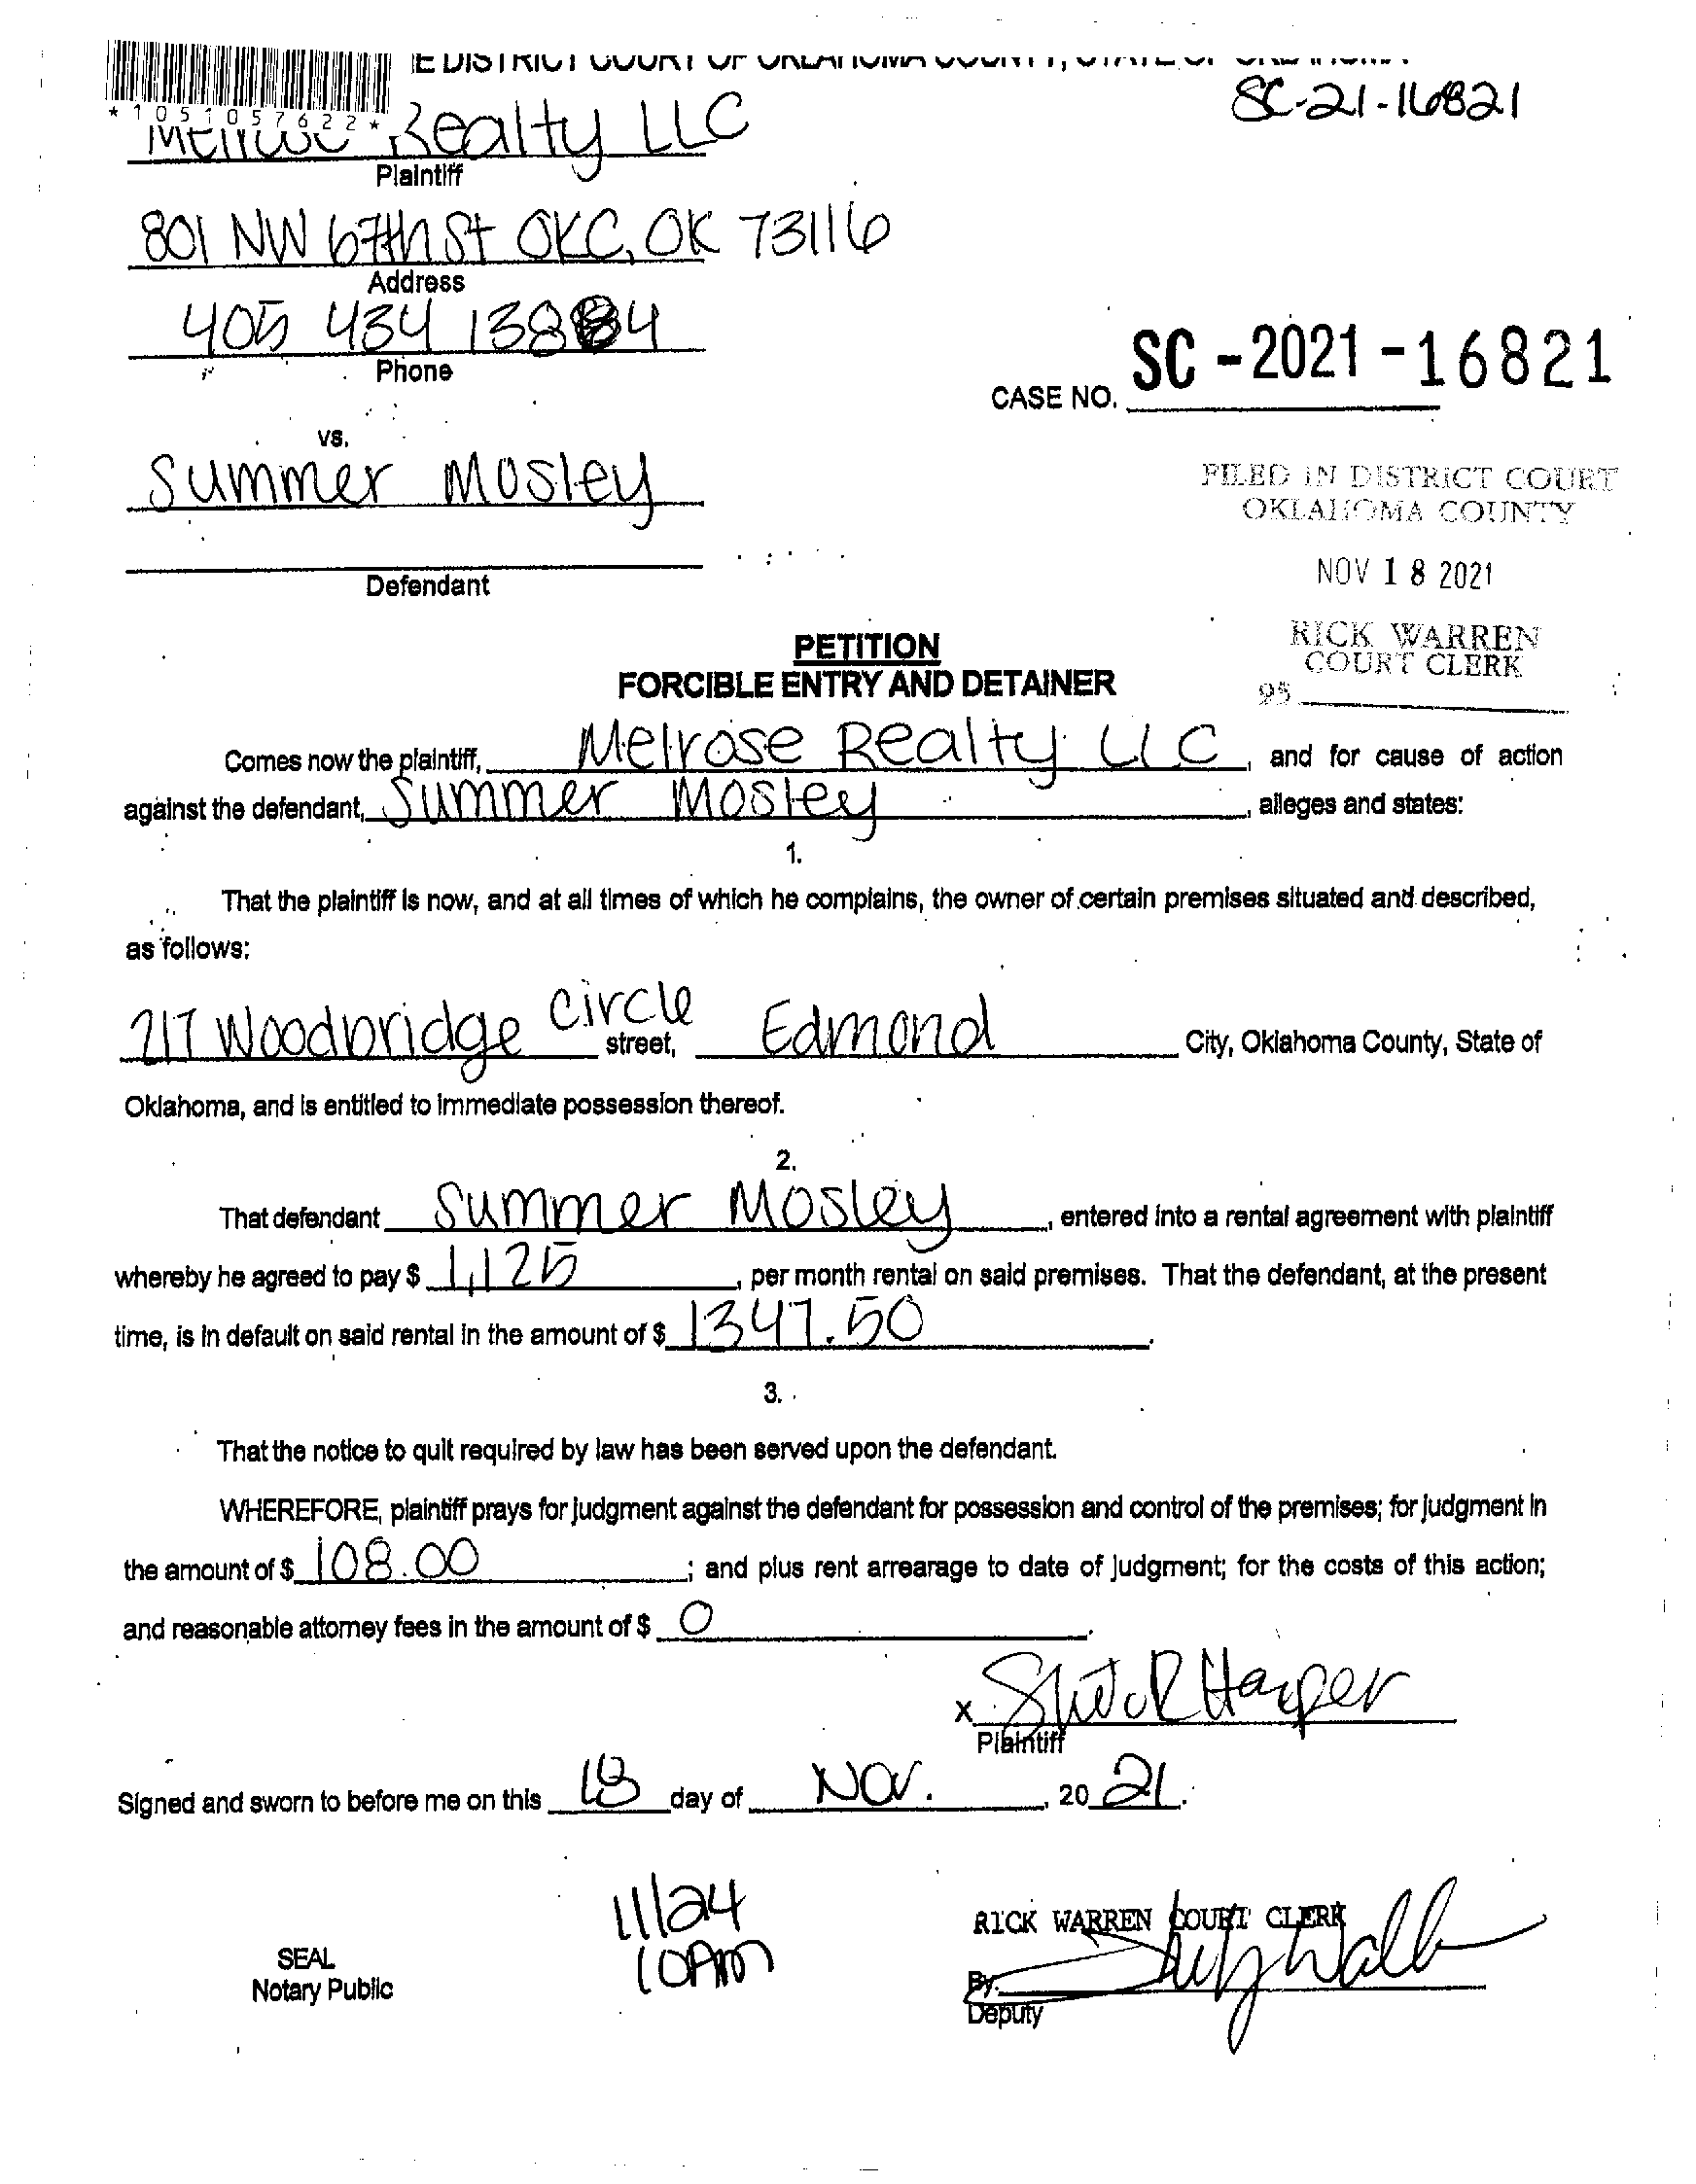 E DISTRICT COURT OF OKLAHOMA COUNTY, STATE OF OKLAHOMA
SC-21-16821
*1051057622*
Melrose Realty LLC
Plaintiff
801 NW 67th St OKC, OK 73116
Address
405 434 138 4
Phone
SC-2021-16821
CASE NO.
vs.
Summer Mosley
FILED IN DISTRICT COURT
OKLAHOMA COUNTY
Defendant
NOV 18 2021
RICK WARREN
COURT CLERK
95
PETITION
FORCIBLE ENTRY AND DETAINER
Comes now the plaintiff, Melrose Realty LLC, and for cause of action
against the defendant, Summer Mosley, alleges and states:
1.
That the plaintiff is now, and at all times of which he complains, the owner of certain premises situated and described,
as follows:
217 Woodbridge circle street, Edmond City, Oklahoma County, State of
Oklahoma, and is entitled to immediate possession thereof.
2.
That defendant Summer Mosley, entered into a rental agreement with plaintiff
whereby he agreed to pay $ 1,125, per month rental on said premises. That the defendant, at the present
time, is in default on said rental in the amount of $ 1347.50.
3.
That the notice to quit required by law has been served upon the defendant.
WHEREFORE, plaintiff prays for judgment against the defendant for possession and control of the premises; for judgment in
the amount of $ 108.00; and plus rent arrearage to date of judgment; for the costs of this action;
and reasonable attorney fees in the amount of $ 0.
x Harper
Plaintiff
Signed and sworn to before me on this 18 day of Nov., 20 21.
11/24
10AM
RICK WARREN COURT CLERK
SEAL
Notary Public
By:
Deputy